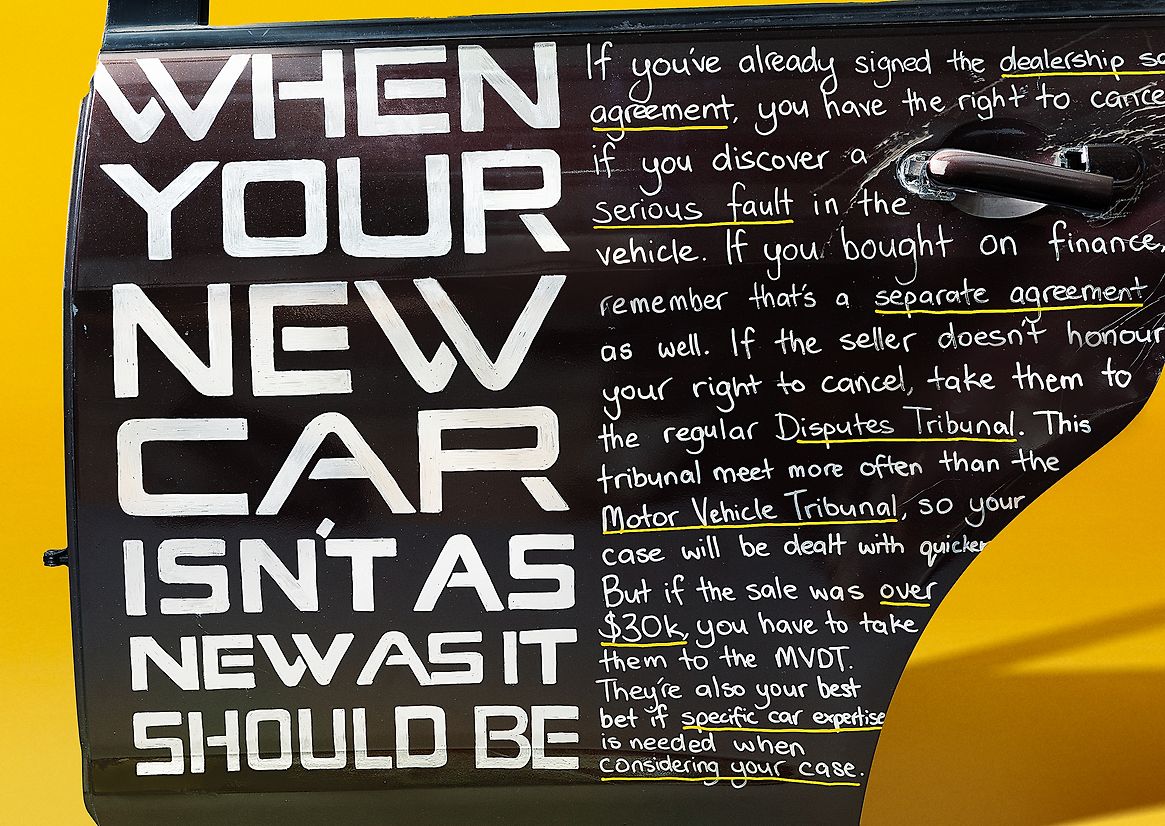 WHEN
YOUR
NEW
CAR
ISN'T AS
NEW AS IT
SHOULD BE
If you've already signed the dealership
agreement, you have the right to cance
if you discover a
serious fault in the
vehicle. If you bought on finance,
remember that's a separate agreement
as well. If the seller doesn't honour
your right to cancel, take them to
the regular Disputes Tribunal. This
tribunal meet more often than the
Motor Vehicle Tribunal, so your
case will be dealt with quicker
But if the sale was over
$30k, you have to take
them to the MVDT.
They're also your best
bet if specific car expertise
is needed when
considering your case.